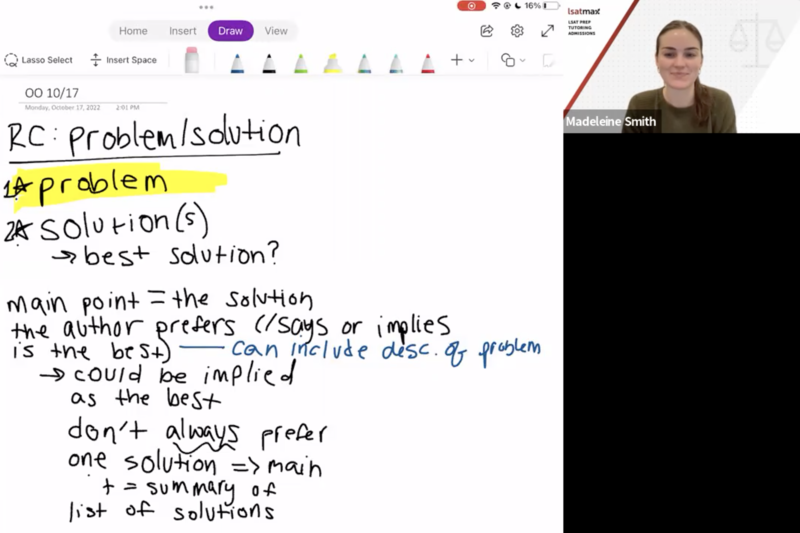 16%
Home Insert Draw View
Lasso Select Insert Space
OO 10/17
Monday, October 17, 2022 2:01 PM
RC: problem/solution
1* problem
2* solution(s)
→ best solution?
main point = the solution
the author prefers (/says or implies
is the best) — can include desc. of problem
→ could be implied
as the best
don't always prefer
one solution => main
+ = summary of
list of solutions
lsatmax
LSAT PREP
TUTORING
ADMISSIONS
Madeleine Smith